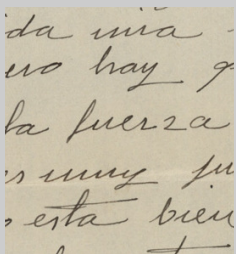 da una
ero hay q
la fuerza
es muy ju
esta bien